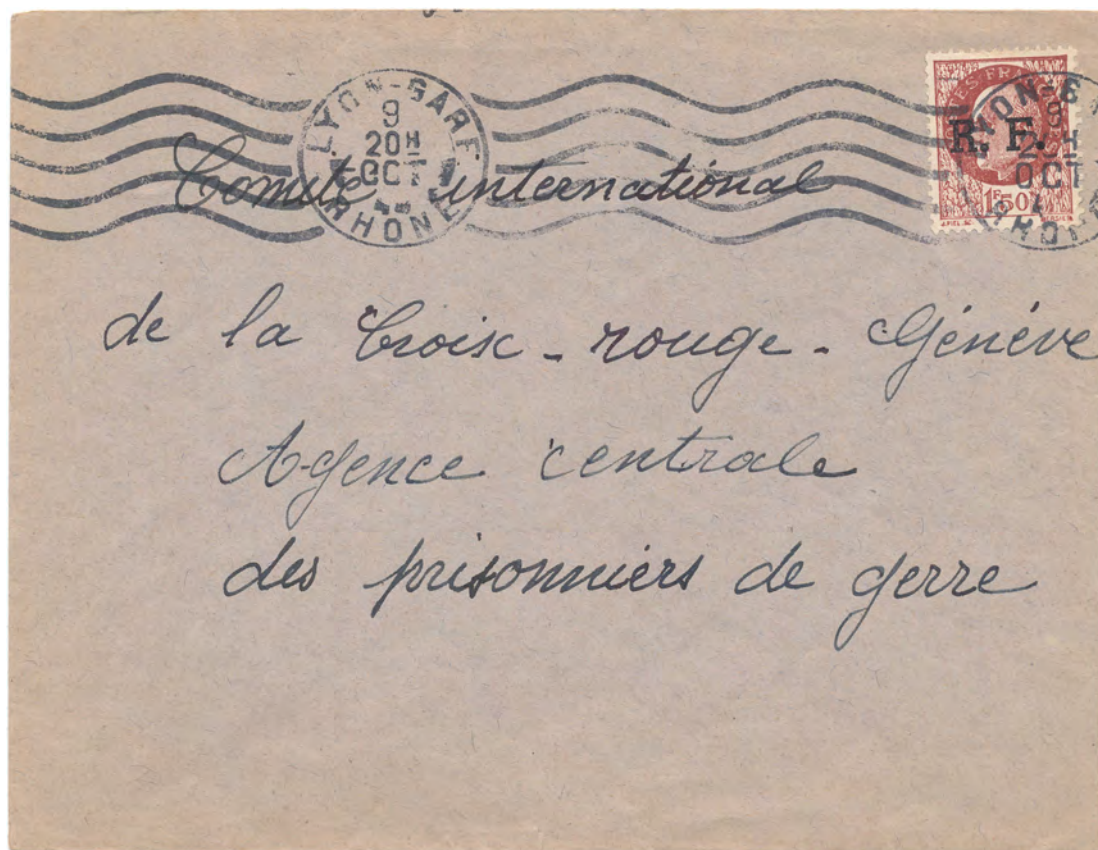 LYON-GARE
9
20H
OCT
RHONE
POSTES FRANÇAISES
R. F.
1F50
YON-G
9
OCT
Comité international
de la Croix-rouge-Génève
Agence centrale
des prisonniers de gerre